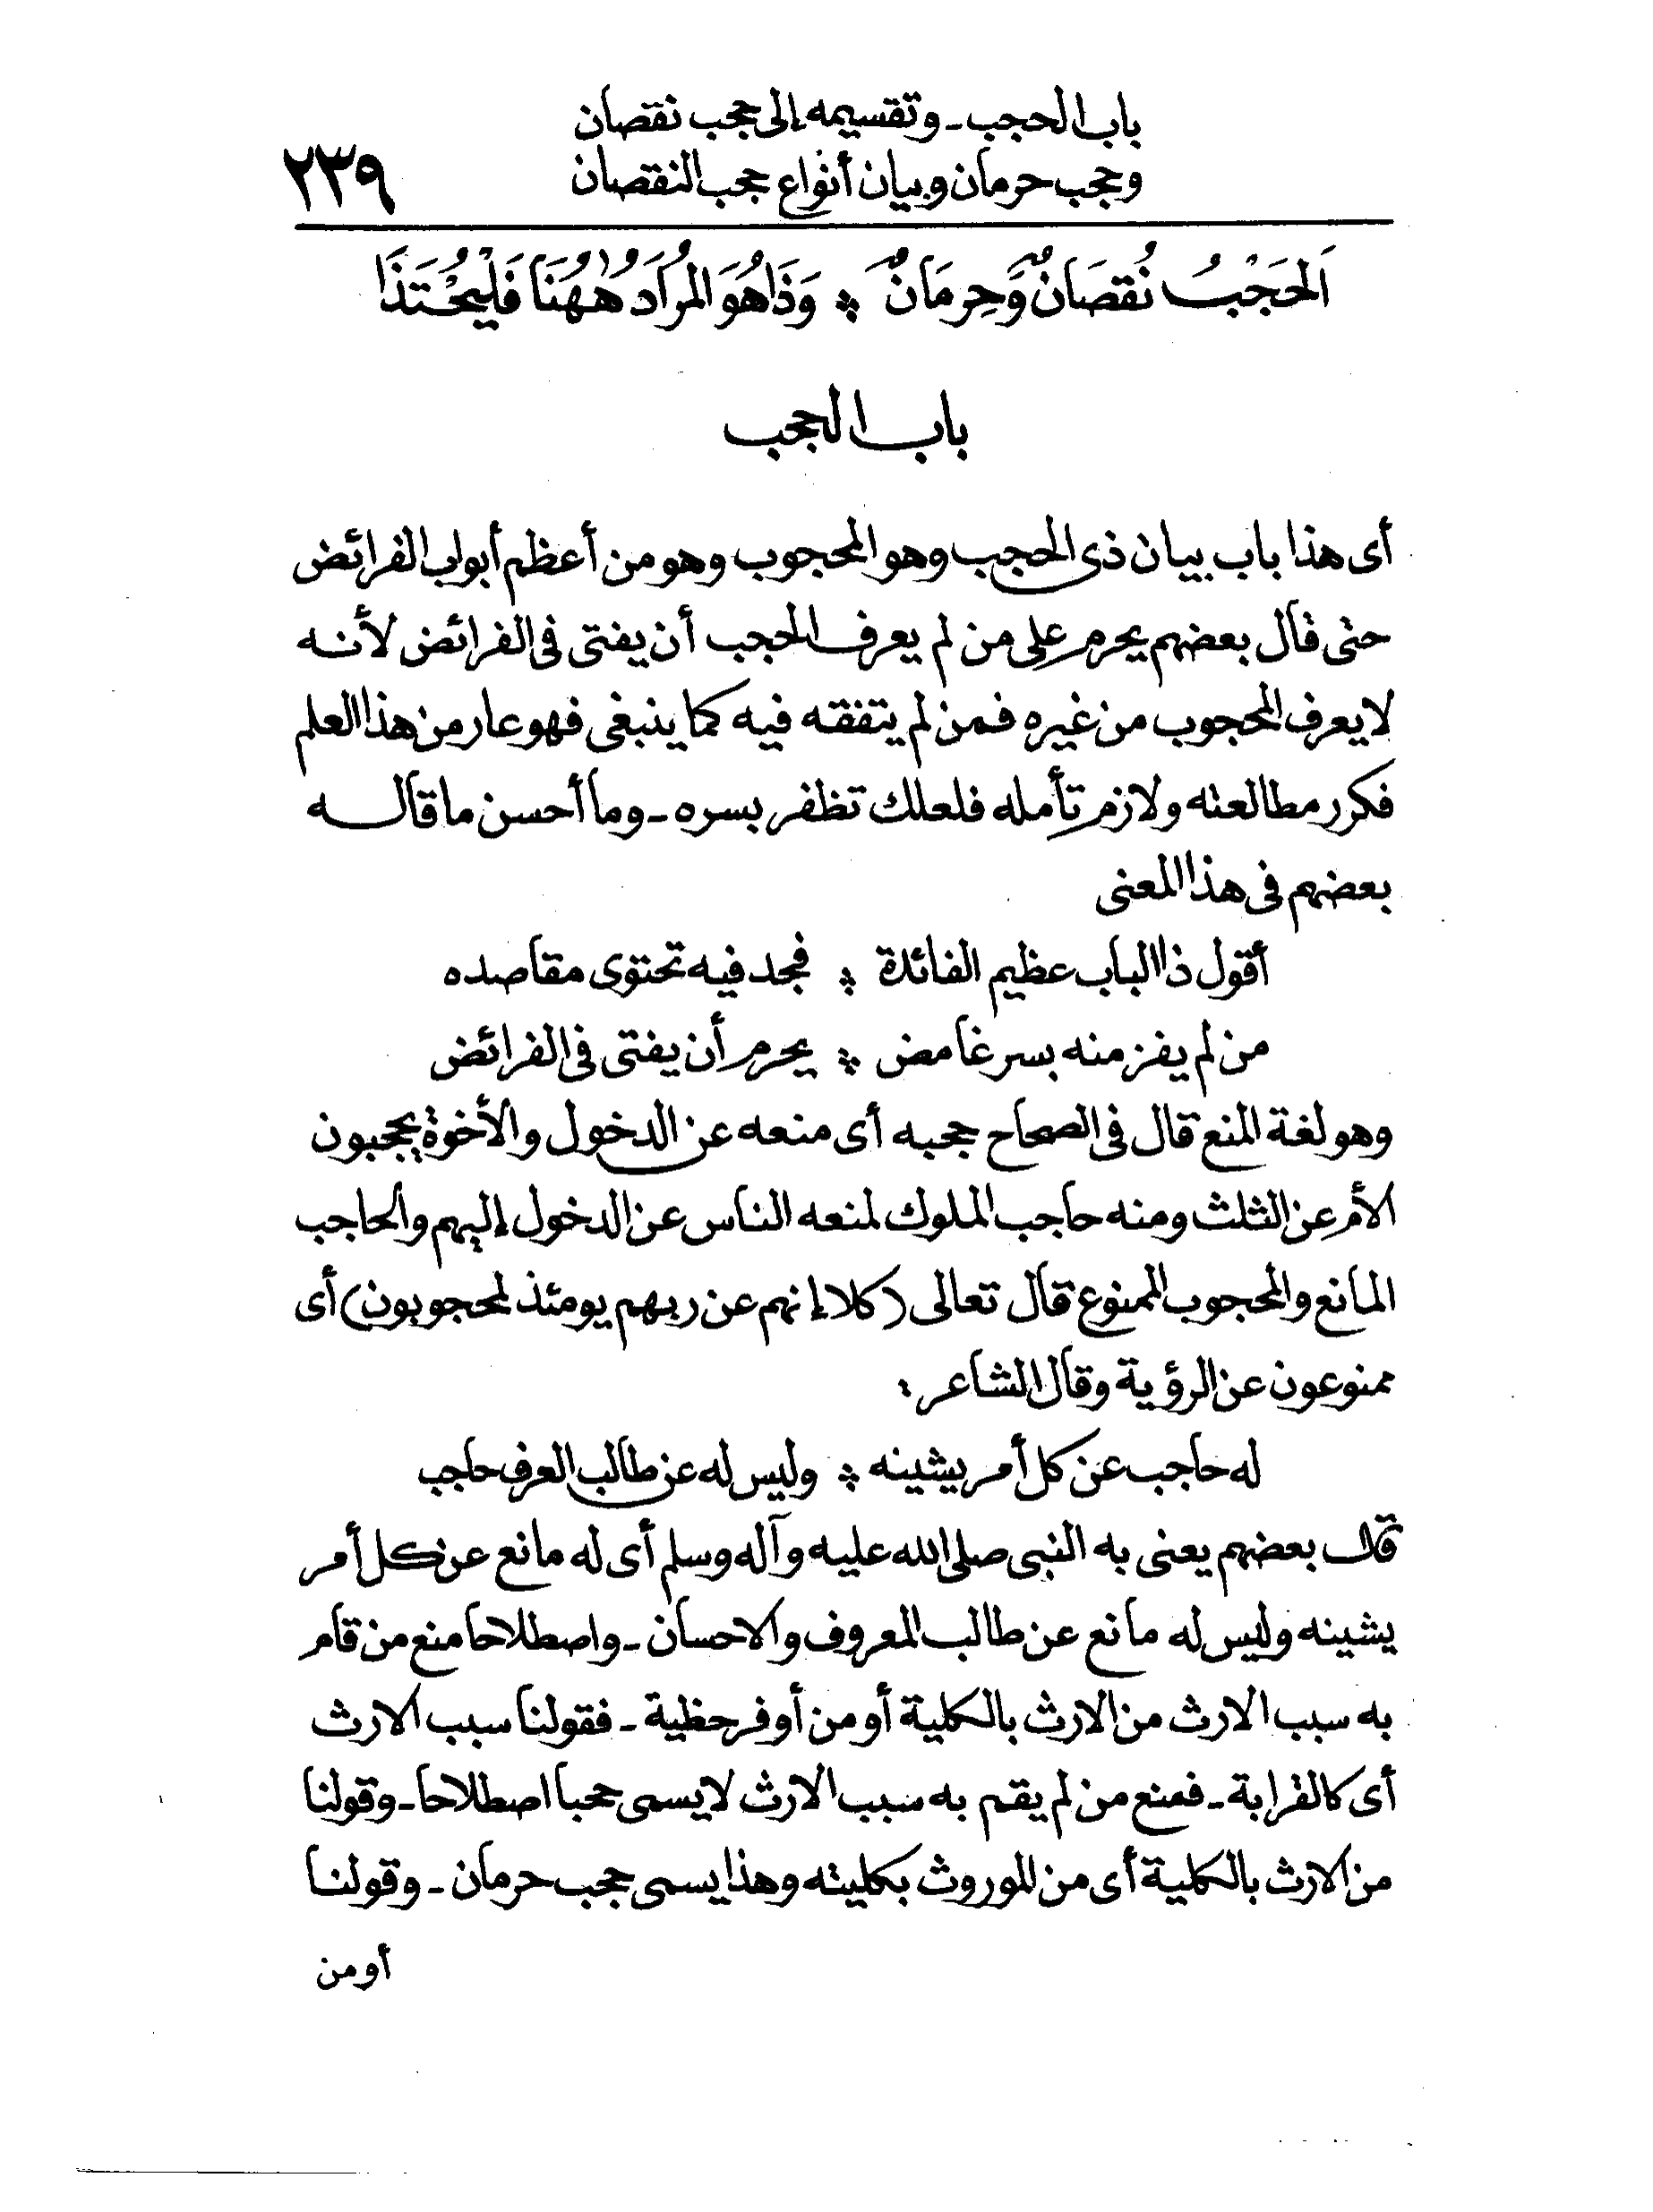 باب الحجب - وتقسيمه إلى حجب نقصان
وحجب حرمان وبيان أنواع حجب النقصان
٢٣٩
اَلْحَجْبُ نُقصَانٌ وَّحِرمَانٌ وَ ٭ وَذَا هُوَ الْمُرَادُ هٰهُنَا فَلْيُحْتَذَا
باب الحجب
أى هذا باب بيان ذى الحجب وهو المحجوب وهو من أعظم أبواب الفرائض
حتى قال بعضهم يحرم على من لم يعرف الحجب أن يفتى فى الفرائض لأنه
لا يعرف المحجوب من غيره فمن لم يتفقه فيه كما ينبغى فهو عار من هذا العلم
فكرر مطالعته ولازم تأمله فلعلك تظفر بسره - وما أحسن ما قاله
بعضهم فى هذا المعنى
أقول ذا الباب عظيم الفائدة ٭ فجد فيه تحتوى مقاصده
من لم يفز منه بسر غامض ٭ يحرم أن يفتى فى الفرائض
وهو لغة المنع قال فى الصحاح حجبه أى منعه عن الدخول والأخوة يحجبون
الأم عن الثلث ومنه حاجب الملوك لمنعه الناس عن الدخول إليهم والحاجب
المانع والمحجوب الممنوع قال تعالى (كلا إنهم عن ربهم يومئذ لمحجوبون) أى
ممنوعون عن الرؤية وقال الشاعر :
له حاجب عن كل أمر يشينه ٭ وليس له عن طالب العرف حاجب
قال بعضهم يعنى به النبى صلى الله عليه وآله وسلم أى له مانع عن كل أمر
يشينه وليس له مانع عن طالب المعروف والاحسان - واصطلاحا منع من قام
به سبب الارث من الارث بالكلية أو من أوفر حظية - فقولنا سبب الارث
أى كالقرابة - فمنع من لم يقم به سبب الارث لا يسمى حجبا اصطلاحا - وقولنا
من الارث بالكلية أى من الموروث بكليته وهذا يسمى حجب حرمان - وقولنا
أو من